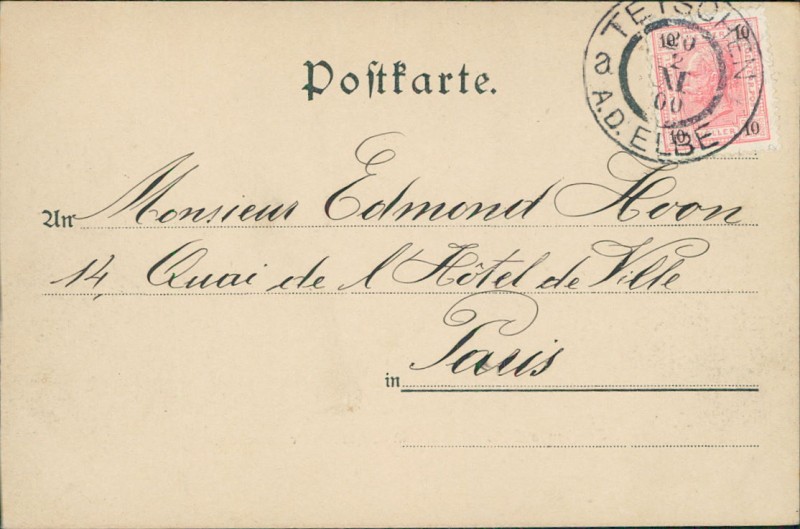 Postkarte.
TETSCHEN
A.D. ELBE
a
20
2
VI
00
10 10
10 10
An Monsieur Edmond Hoon
14, Quai de l'Hôtel de Ville
in Paris